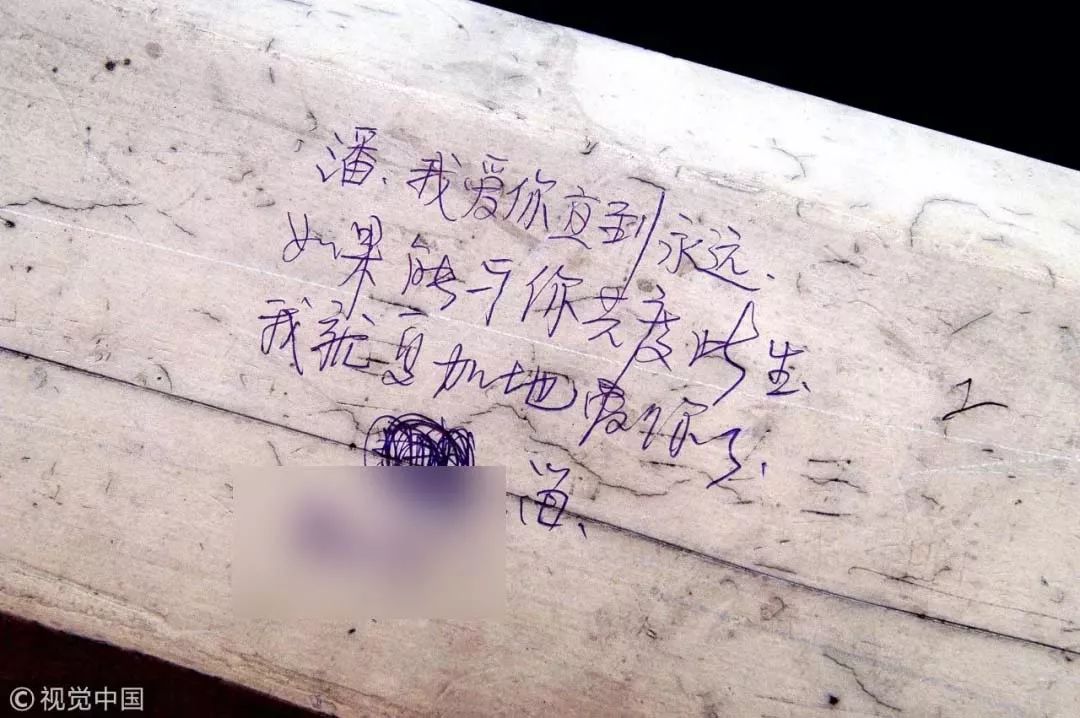 潘、我爱你直到永远、
如果能与你共度此生、
我就更加地爱你了、
海、
© 视觉中国